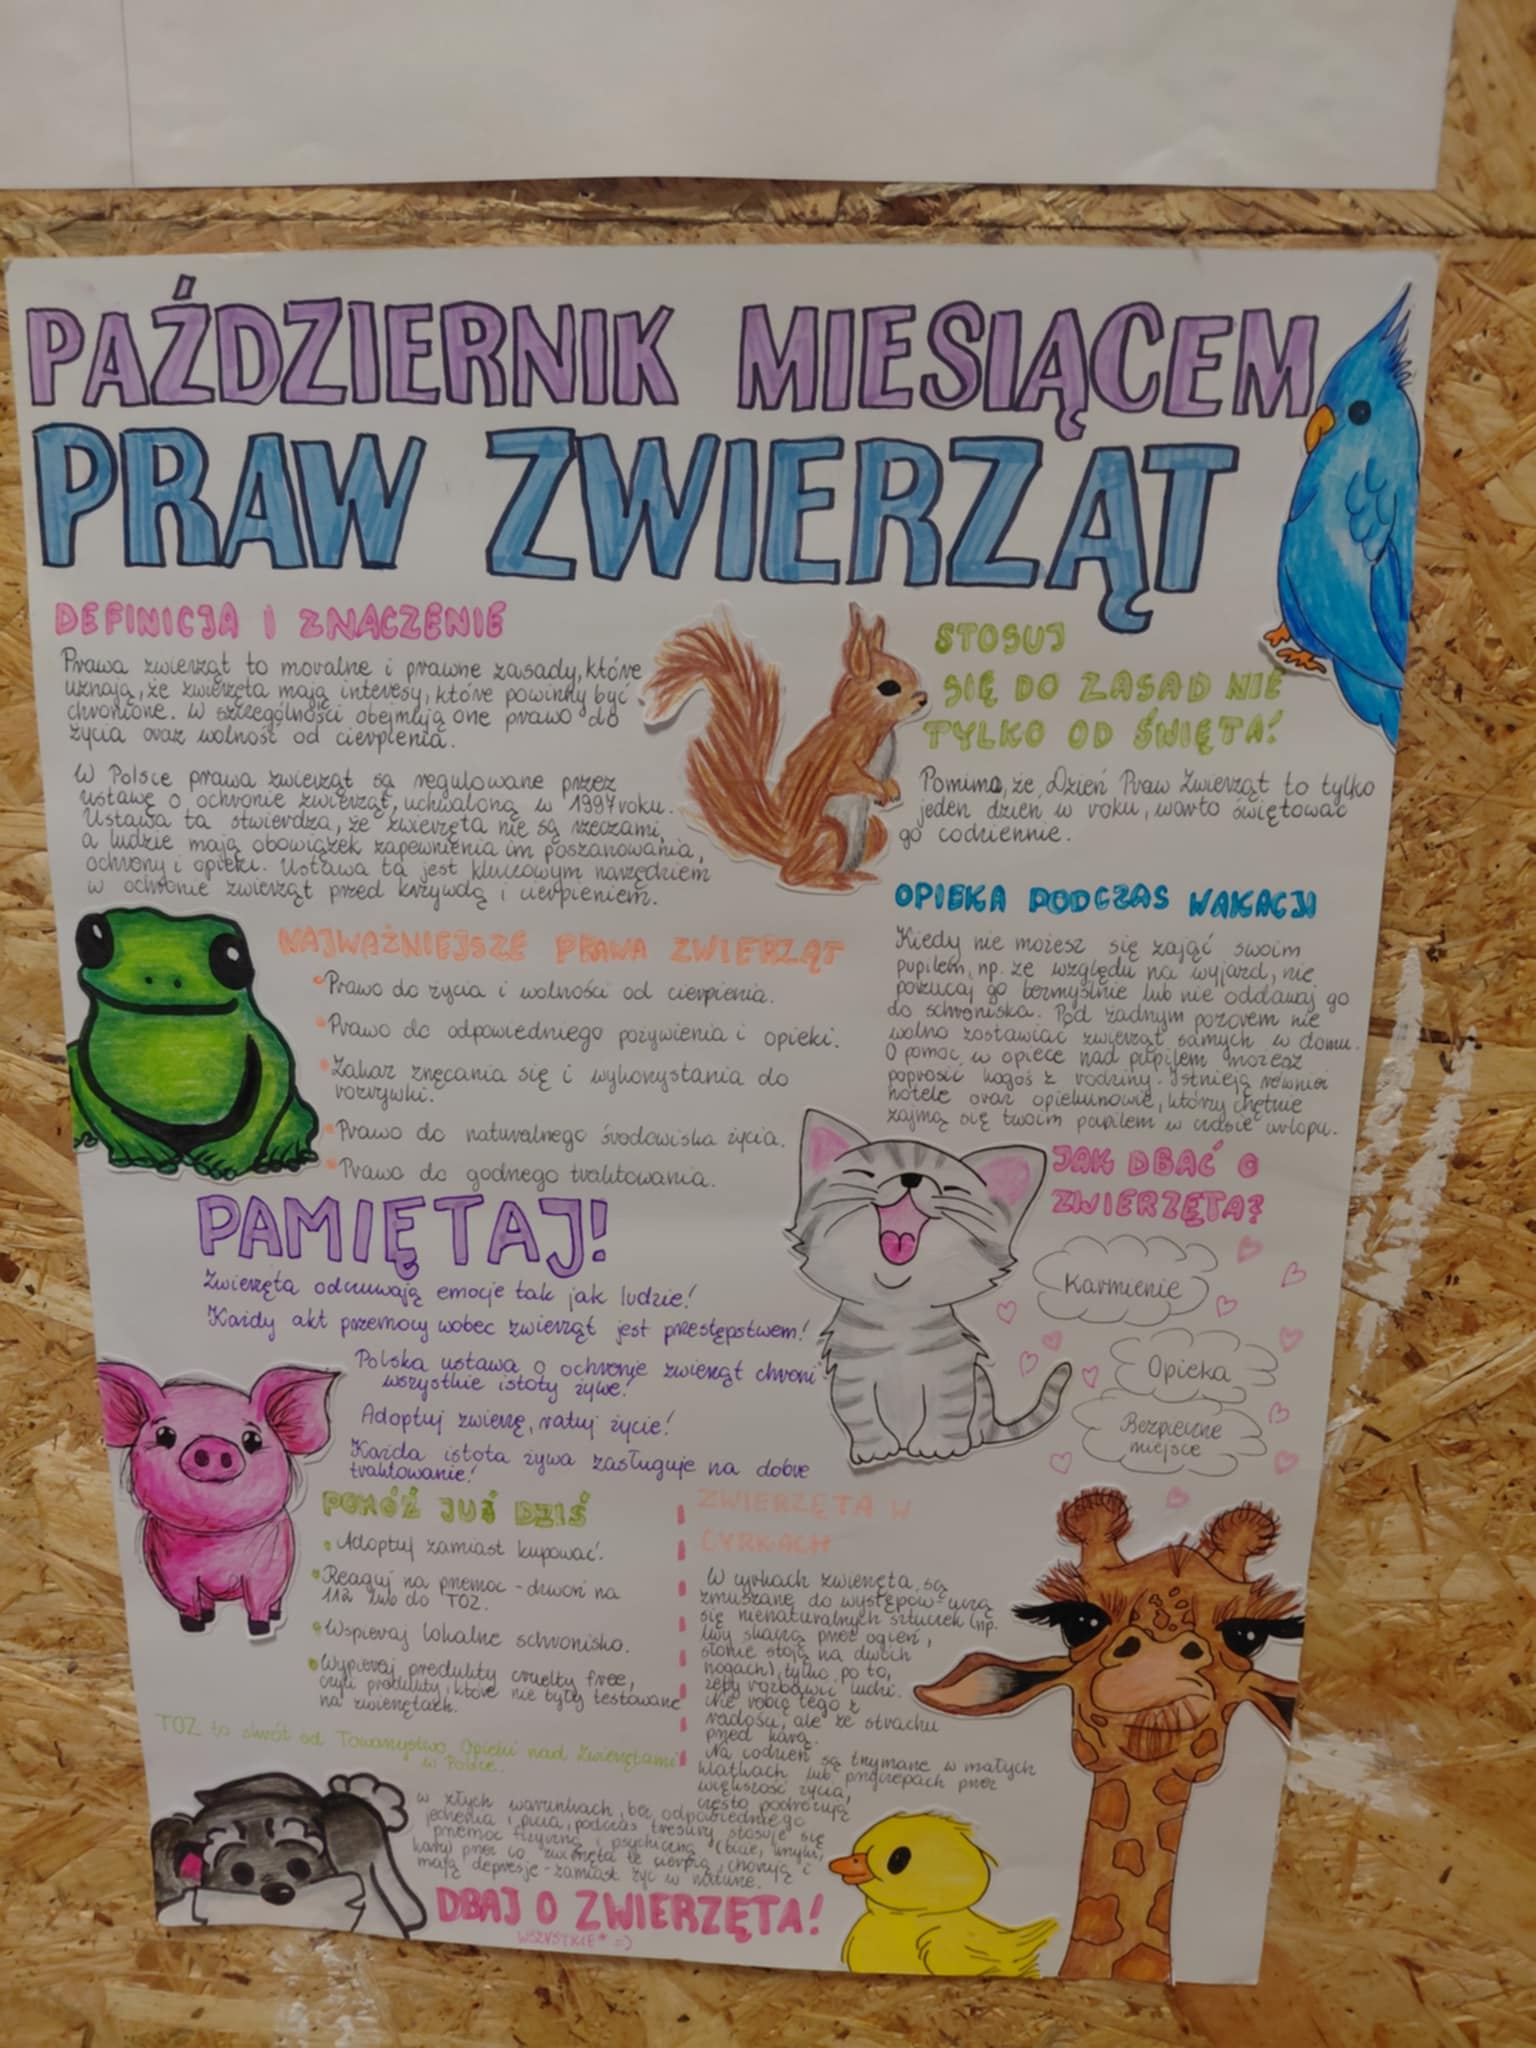 PAŹDZIERNIK MIESIĄCEM
PRAW ZWIERZĄT
DEFINICJA I ZNACZENIE
Prawa zwierząt to moralne i prawne zasady, które
uznają, że zwierzęta mają interesy, które powinny być
chronione. W szczególności obejmują one prawo do
życia oraz wolność od cierpienia.
W Polsce prawa zwierząt są regulowane przez
ustawę o ochronie zwierząt, uchwaloną w 1997 roku.
Ustawa ta stwierdza, że zwierzęta nie są rzeczami,
a ludzie mają obowiązek zapewnienia im poszanowania,
ochrony i opieki. Ustawa ta jest kluczowym narzędziem
w ochronie zwierząt przed krzywdą i cierpieniem.
STOSUJ
SIĘ DO ZASAD NIE
TYLKO OD ŚWIĘTA!
Pomimo, że Dzień Praw Zwierząt to tylko
jeden dzień w roku, warto świętować
go codziennie.
OPIEKA PODCZAS WAKACJI
Kiedy nie możesz się zająć swoim
pupilem, np. ze względu na wyjazd, nie
porzucaj go bezmyślnie lub nie oddawaj go
do schroniska. Pod żadnym pozorem nie
wolno zostawiać zwierząt samych w domu.
O pomoc w opiece nad pupilem możesz
poprosić kogoś z rodziny. Istnieją również
hotele oraz opiekunowie, którzy chętnie
zajmą się twoim pupilem w czasie urlopu.
NAJWAŻNIEJSZE PRAWA ZWIERZĄT
• Prawo do życia i wolności od cierpienia.
• Prawo do odpowiedniego pożywienia i opieki.
• Zakaz znęcania się i wykorzystania do
rozrywki.
• Prawo do naturalnego środowiska życia.
• Prawo do godnego traktowania.
JAK DBAĆ O
ZWIERZĘTA?
Karmienie
Opieka
Bezpieczne
miejsce
PAMIĘTAJ!
Zwierzęta odczuwają emocje tak jak ludzie!
Każdy akt przemocy wobec zwierząt jest przestępstwem!
Polska ustawa o ochronie zwierząt chroni
wszystkie istoty żywe!
Adoptuj zwierzę, ratuj życie!
Każda istota żywa zasługuje na dobre
traktowanie!
POMÓŻ JUŻ DZIŚ
• Adoptuj zamiast kupować.
• Reaguj na przemoc - dzwoń na
112 lub do TOZ.
• Wspieraj lokalne schronisko.
• Wypieraj produkty cruelty free,
czyli produkty, które nie były testowane
na zwierzętach.
TOZ to skrót od Towarzystwo Opieki nad Zwierzętami
w Polsce.
ZWIERZĘTA W
CYRKACH
W cyrkach zwierzęta są
zmuszane do występów - uczą
się nienaturalnych sztuczek (np.
lwy skaczą przez ogień,
słonie stoją na dwóch
nogach), tylko po to,
żeby rozbawić ludzi.
Nie robią tego z
radości, ale ze strachu
przed karą.
Na codzień są trzymane w małych
klatkach lub przyczepach przez
większość życia,
często podróżują
w złych warunkach, bez odpowiedniego
jedzenia i picia, podczas tresury stosuje się
przemoc fizyczną i psychiczną (bicie, krzyki,
kary) przez co zwierzęta te cierpią, chorują i
mają depresje - zamiast żyć w naturze.
DBAJ O ZWIERZĘTA!
WSZYSTKIE* =)